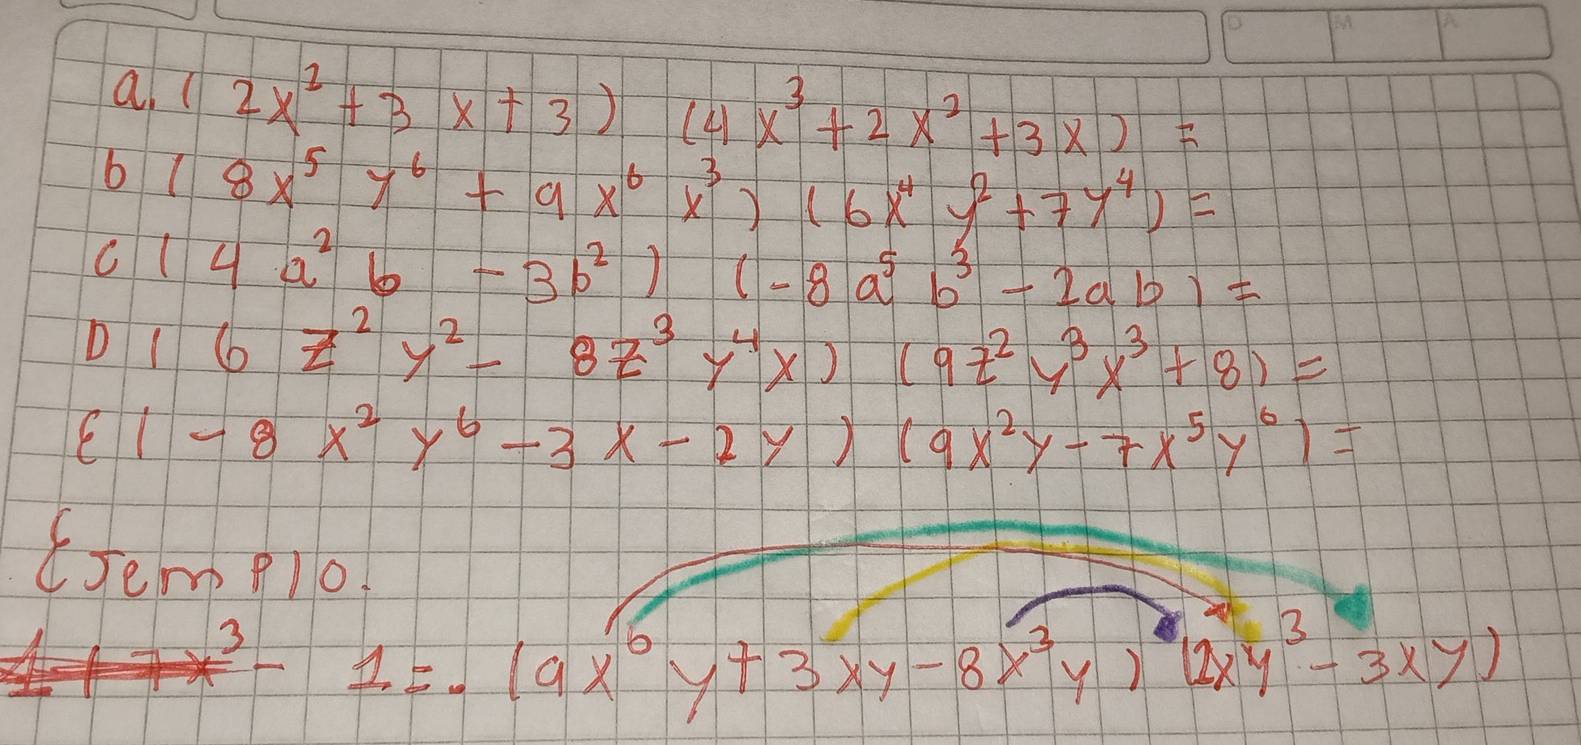 D M A
a. (2x² + 3x + 3) (4x³ + 2x² + 3x) =
b (8x⁵ y⁶ + 9x⁶ x³) (6x⁴ y² + 7y⁴) =
c (4a² b - 3b²) (-8a⁵ b³ - 2ab) =
D (6 z² y² - 8z³ y⁴ x) (9z² y³ x³ + 8) =
E (-8 x² y⁶ - 3x - 2y) (9x² y - 7x⁵ y⁶) =
EJemplo.
1 = . (9x⁶ y + 3xy - 8x³ y) (2xy³ - 3xy)